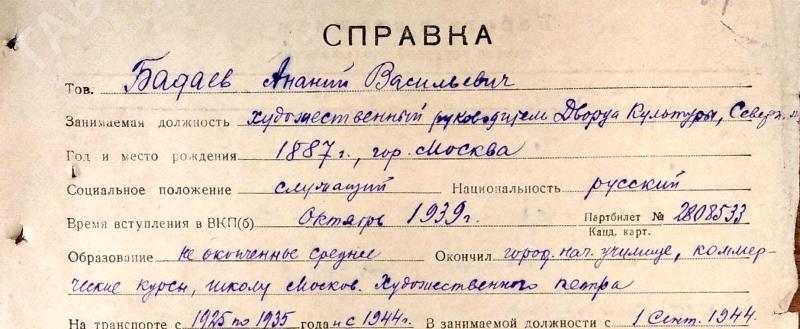 СПРАВКА
Тов. Бадаев Ананий Васильевич
Занимаемая должность художественный руководителем Дворца Культуры, Северн.
Год и место рождения 1887 г., гор. Москва
Социальное положение служащий Национальность русский
Время вступления в ВКП(б) Октябрь 1939 г. Партбилет № 2808533
Канд. карт.
Образование не оконченное среднее Окончил город. нач. училище, коммер-
ческие курсы, школу Москов. Художественного театра
На транспорте с 1925 по 1935 года и с 1944 г. В занимаемой должности с 1 Сент. 1944.